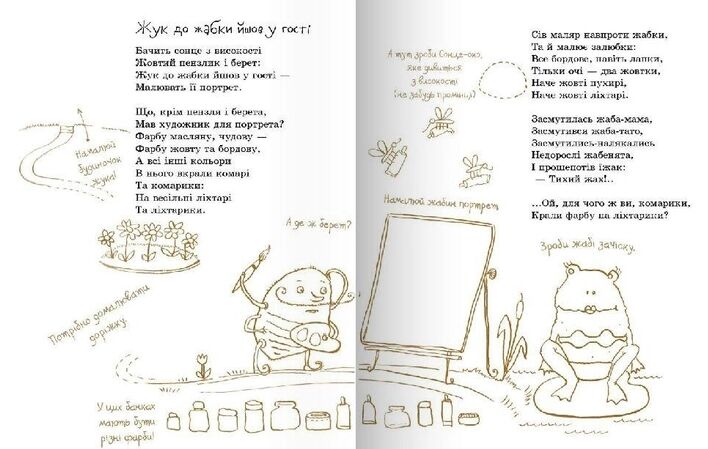 Жук до жабки йшов у гості
Бачить сонце з високості
Жовтий пензлик і берет:
Жук до жабки йшов у гості —
Малювать її портрет.
Що, крім пензля і берета,
Мав художник для портрета?
Фарбу масляну, чудову —
Фарбу жовту та бордову,
А всі інші кольори
В нього вкрали комарі
Та комарики:
На весільні ліхтарі
Та ліхтарики.
Намалюй
будиночок
жука!
А де ж берет?
Потрібно домалювати
доріжку.
У цих банках
мають бути
різні фарби!
А тут зроби Сонце-око,
яке дивиться
з високості
(не забудь промінці)
Намалюй жабин портрет
Сів маляр навпроти жабки,
Та й малює залюбки:
Все бордове, навіть лапки,
Тільки очі — два жовтки,
Наче жовті пухирі,
Наче жовті ліхтарі.
Засмутилась жаба-мама,
Засмутився жаба-тато,
Засмутились-налякались
Недорослі жабенята,
І прошепотів їжак:
— Тихий жах!..
...Ой, для чого ж ви, комарики,
Крали фарбу на ліхтарики?
Зроби жабі зачіску.